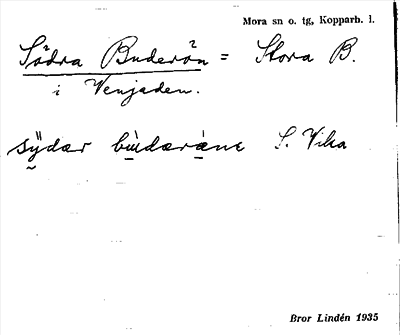 Mora sn o. tg, Kopparb. l.
Södra Buderön = Stora B.
i Venjaden.
sÿdær bùdæràne S. Vika
Bror Lindén 1935